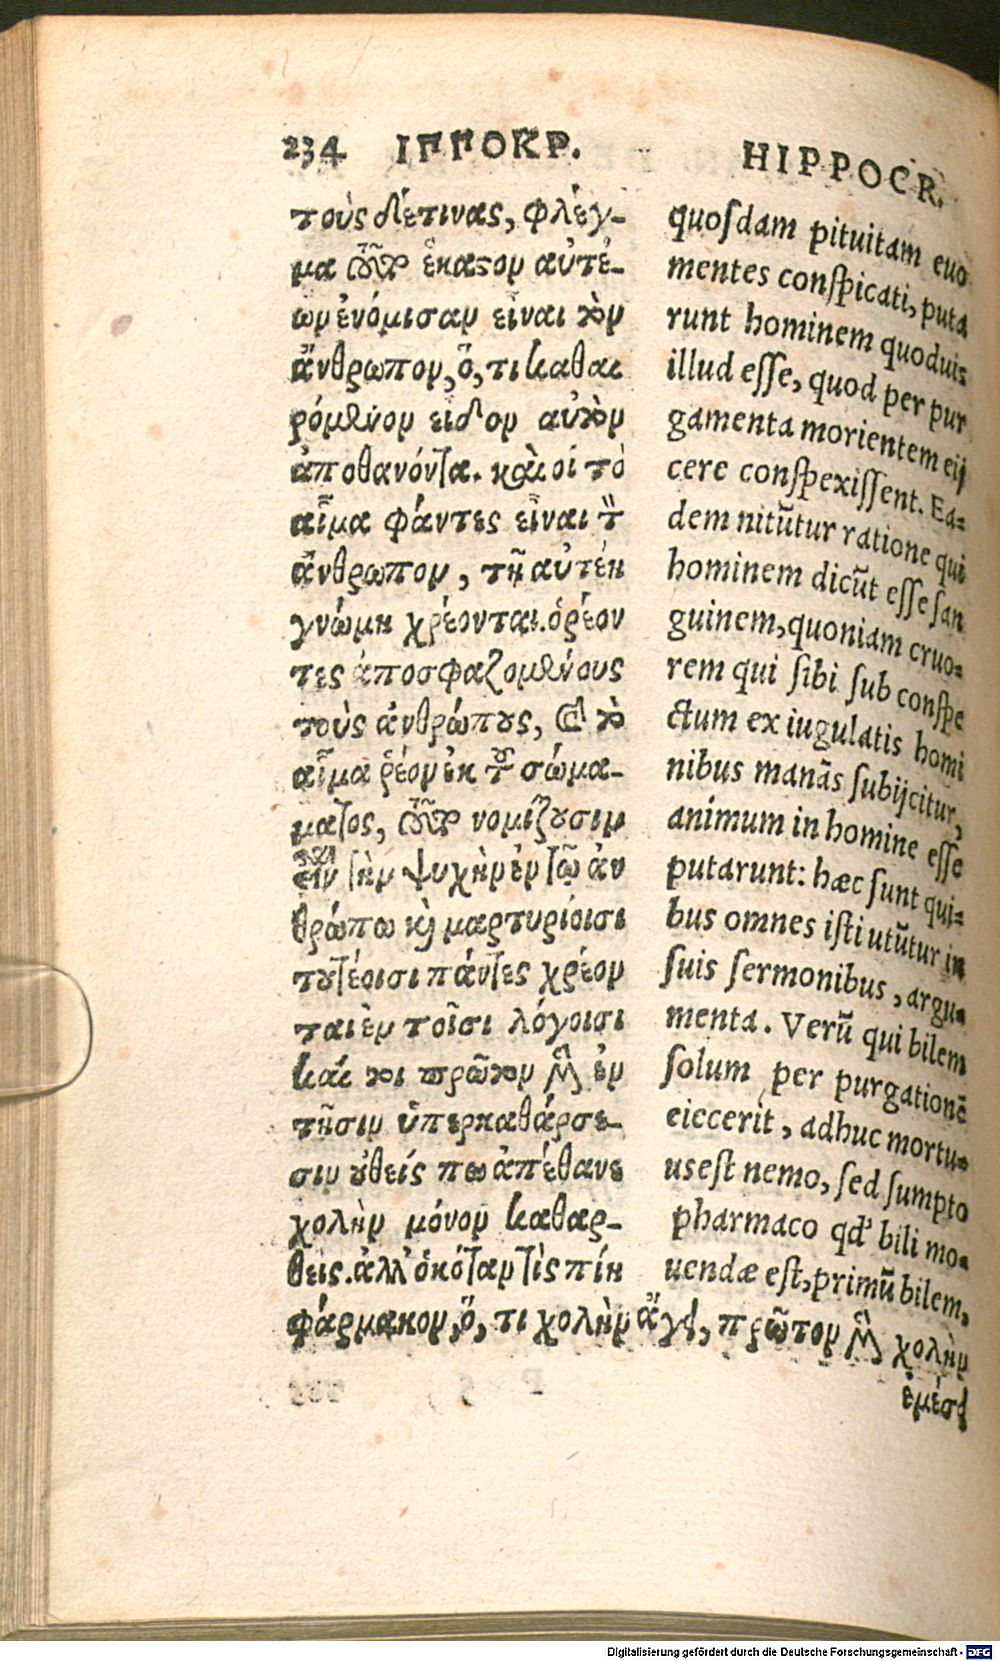 234 ΙΠΠΟΚΡ.
τοὺς δέ τινας, φλέγ-
μα τῶν ἕκαστον αὐτέ-
ων ἐνόμισαν εἶναι τὸν
ἄνθρωπον, ὅ, τι καθαι
ρόμενον εἶδον αὐτὸν
ἀποθανόντα. καὶ οἱ τὸ
αἷμα φάντες εἶναι τὸν
ἄνθρωπον, τῇ αὐτέῃ
γνώμῃ χρέονται. ὁρέον
τες ἀποσφαζομένους
τοὺς ἀνθρώπους, καὶ τὸ
αἷμα ῥέον ἐκ τοῦ σώμα-
ματος, νομίζουσιν
εἶναι τὴν ψυχὴν ἐν τῷ ἀν
θρώπῳ καὶ μαρτυρίοισι
τουτέοισι πάντες χρέον
ται ἐν τοῖσι λόγοισι
καί τοι πρῶτον μὲν ἐν
τῇσιν ὑπερκαθάρσε-
σιν οὐθείς πω ἀπέθανε
χολὴν μόνον καθαρ-
θείς. ἀλλ' ὁκόταν τὶς πίῃ
φάρμακον, ὅ, τι χολὴν ἄγει, πρῶτον μὲν χολὴν
ἐμέσει
HIPPOCR.
quosdam pituitam euo
mentes conspicati, puta
runt hominem quoduis
illud esse, quod per pur
gamenta morientem eij
cere conspexissent. Ea-
dem nitũtur ratione qui
hominem dicũt esse san
guinem, quoniam cruo-
rem qui sibi sub conspe
ctum ex iugulatis homi
nibus manãs subijcitur,
animum in homine esse
putarunt: hæc sunt qui-
bus omnes isti utũtur in
suis sermonibus, argu-
menta. Verũ qui bilem
solum per purgationẽ
eiecerit, adhuc mortu-
us est nemo, sed sumpto
pharmaco qđ bili mo-
uendæ est, primũ bilem,
Digitalisierung gefördert durch die Deutsche Forschungsgemeinschaft - DFG